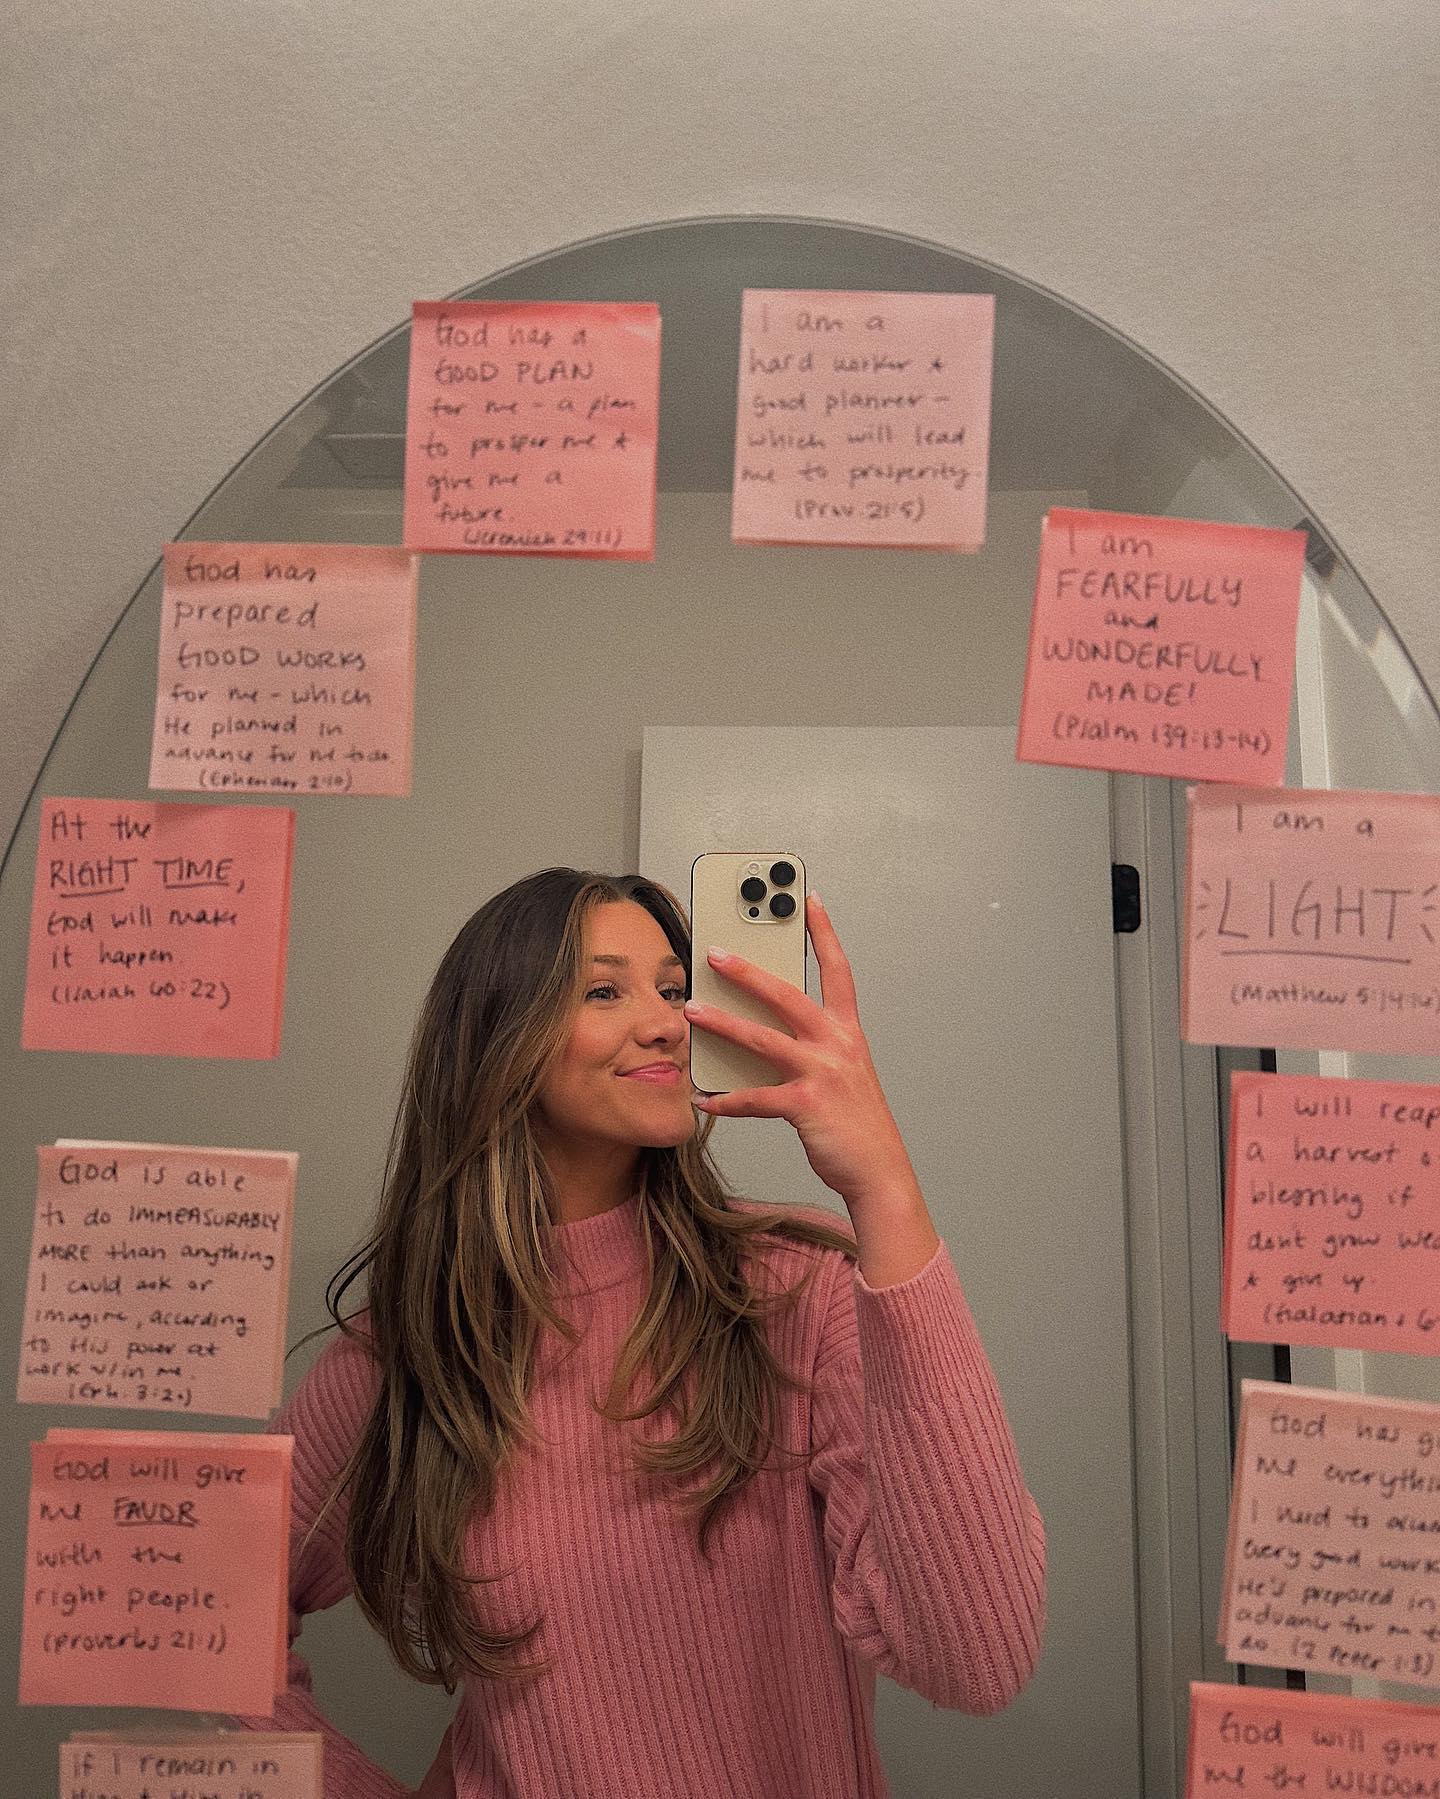 God has a
GOOD PLAN
for me - a plan
to prosper me &
give me a
future.
(Jeremiah 29:11)
I am a
hard worker &
good planner -
which will lead
me to prosperity.
(Prov. 21:5)
God has
prepared
GOOD WORKS
for me - which
He planned in
advance for me to do.
(Ephesians 2:10)
I am
FEARFULLY
and
WONDERFULLY
MADE!
(Psalm 139:13-14)
At the
RIGHT TIME,
God will make
it happen.
(Isaiah 60:22)
I am a
LIGHT
(Matthew 5:14-16)
God is able
to do IMMEASURABLY
MORE than anything
I could ask or
imagine, according
to His power at
work w/in me.
(Eph. 3:20)
I will reap
a harvest
blessing if
don't grow
& give up.
(Galatians 6
God will give
me FAVOR
with the
right people.
(Proverbs 21:1)
God has
me
I need to
every good work
He's prepared in
advance for me
do. (2 Peter 1:3)
If I remain in
Him & Him in
God will give
me the WISDOM